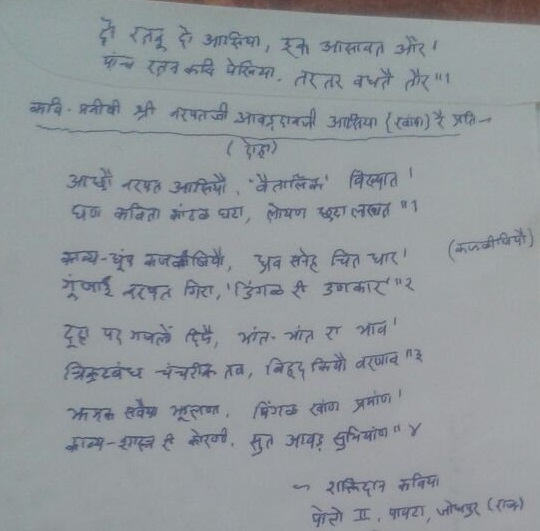 दो रतनू दो आसिया, इक आसावत और।
पांच रतन कवि पेखिया, तर तर वधतै तौर॥१
कवि-मनीषी श्री नरपतजी आवड़दानजी आसिया (खांण) रै प्रति-
(दोहा)
आछौ नरपत आसियौ, 'वैतालिक' विख्यात।
घण कविता कांठळ घटा, लोयण छटा लखात॥१
काव्य-चूंप कजळीजियौ, ध्रुव सनेह चित धार। (कजळीजियौ)
गूंजाई नरपत गिरा, 'डिंगळ री डणकार'॥२
दूहा पद गजलें दिपै, भांत-भांत रा भाव।
त्रिकुटबंध चंचरीक तव, विहद कियौ वरणाव॥३
झमक सवैया झूलणा, पिंगळ खांण प्रमांण।
काव्य-शास्त्र री कोरणी, सुत आवड़ सुभियांण॥४
~ शक्तिदान कविया
पोलो II, पावटा, जोधपुर (राज)